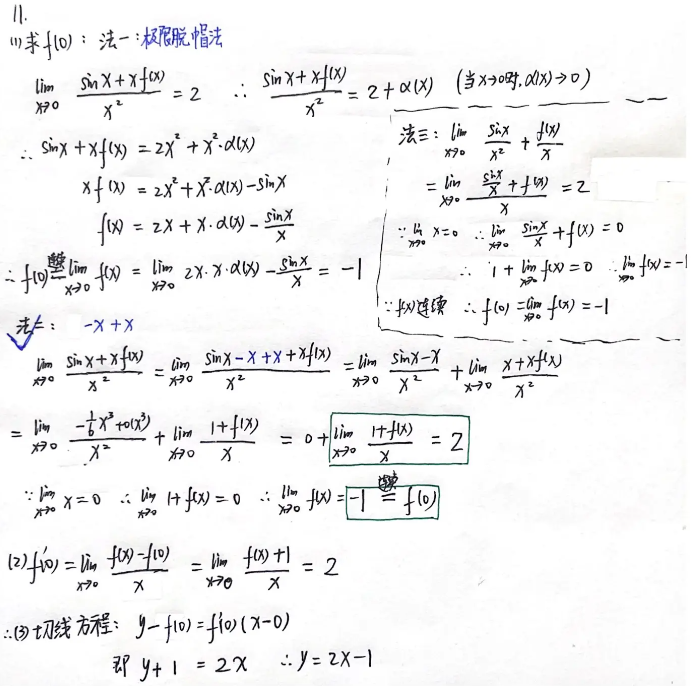 11.
(1) 求 f(0)：法一：极限脱帽法
lim x→0 (sinx + xf(x))/x² = 2 ∴ (sinx + xf(x))/x² = 2 + α(x) (当x→0时, α(x)→0)
∴ sinx + xf(x) = 2x² + x²·α(x)
xf(x) = 2x² + x²·α(x) - sinx
f(x) = 2x + x·α(x) - sinx/x
∴ f(0) 连续= lim x→0 f(x) = lim x→0 2x·x·α(x) - sinx/x = -1
法三：lim x→0 sinx/x² + f(x)/x
= lim x→0 (sinx/x + f(x))/x = 2
∵ lim x→0 x = 0 ∴ lim x→0 sinx/x + f(x) = 0
∴ 1 + lim x→0 f(x) = 0 ∴ lim x→0 f(x) = -1
∵ f(x)连续 ∴ f(0) = lim x→0 f(x) = -1
法二： -x + x
lim x→0 (sinx + xf(x))/x² = lim x→0 (sinx - x + x + xf(x))/x² = lim x→0 (sinx - x)/x² + lim x→0 (x + xf(x))/x²
= lim x→0 (-1/6 x³ + o(x³))/x² + lim x→0 (1 + f(x))/x = 0 + lim x→0 (1 + f(x))/x = 2
∵ lim x→0 x = 0 ∴ lim x→0 1 + f(x) = 0 ∴ lim x→0 f(x) = -1 连续= f(0)
(2) f'(0) = lim x→0 (f(x) - f(0))/x = lim x→0 (f(x) + 1)/x = 2
∴ (3) 切线方程: y - f(0) = f'(0)(x - 0)
即 y + 1 = 2x ∴ y = 2x - 1